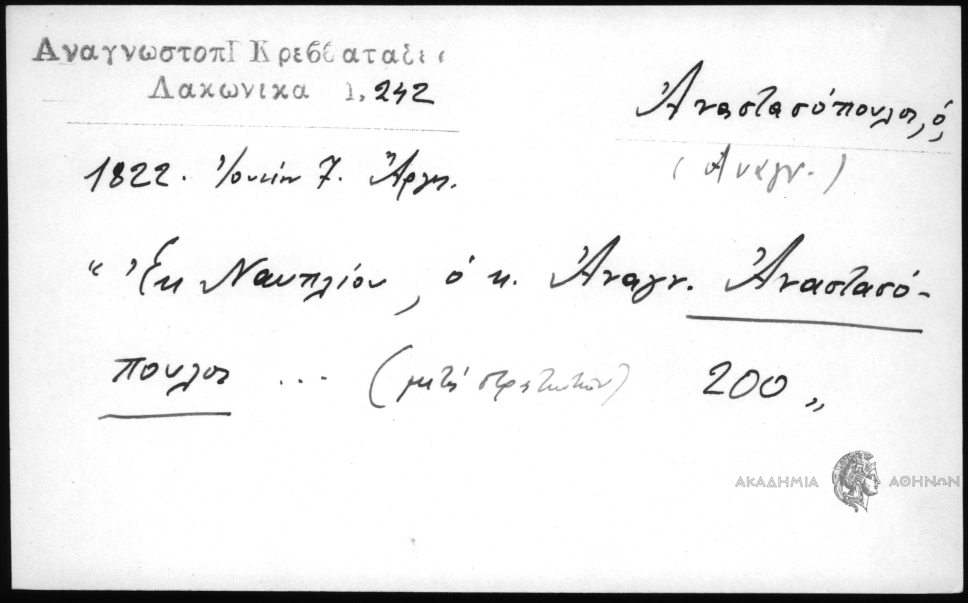 Αναγνωστοπ Κρεββατα
Λακωνικα 1, 242
Ἀναστασόπουλος, ὁ,
(Ἀναγν.)
1822. Ἰουνίου 7. Ἄργος.
"Ἐκ Ναυπλίου, ὁ κ. Ἀναγν. Ἀναστασό-
πουλος ... (μετά στρατιωτῶν) 200 „
ΑΚΑΔΗΜΙΑ ΑΘΗΝΩΝ